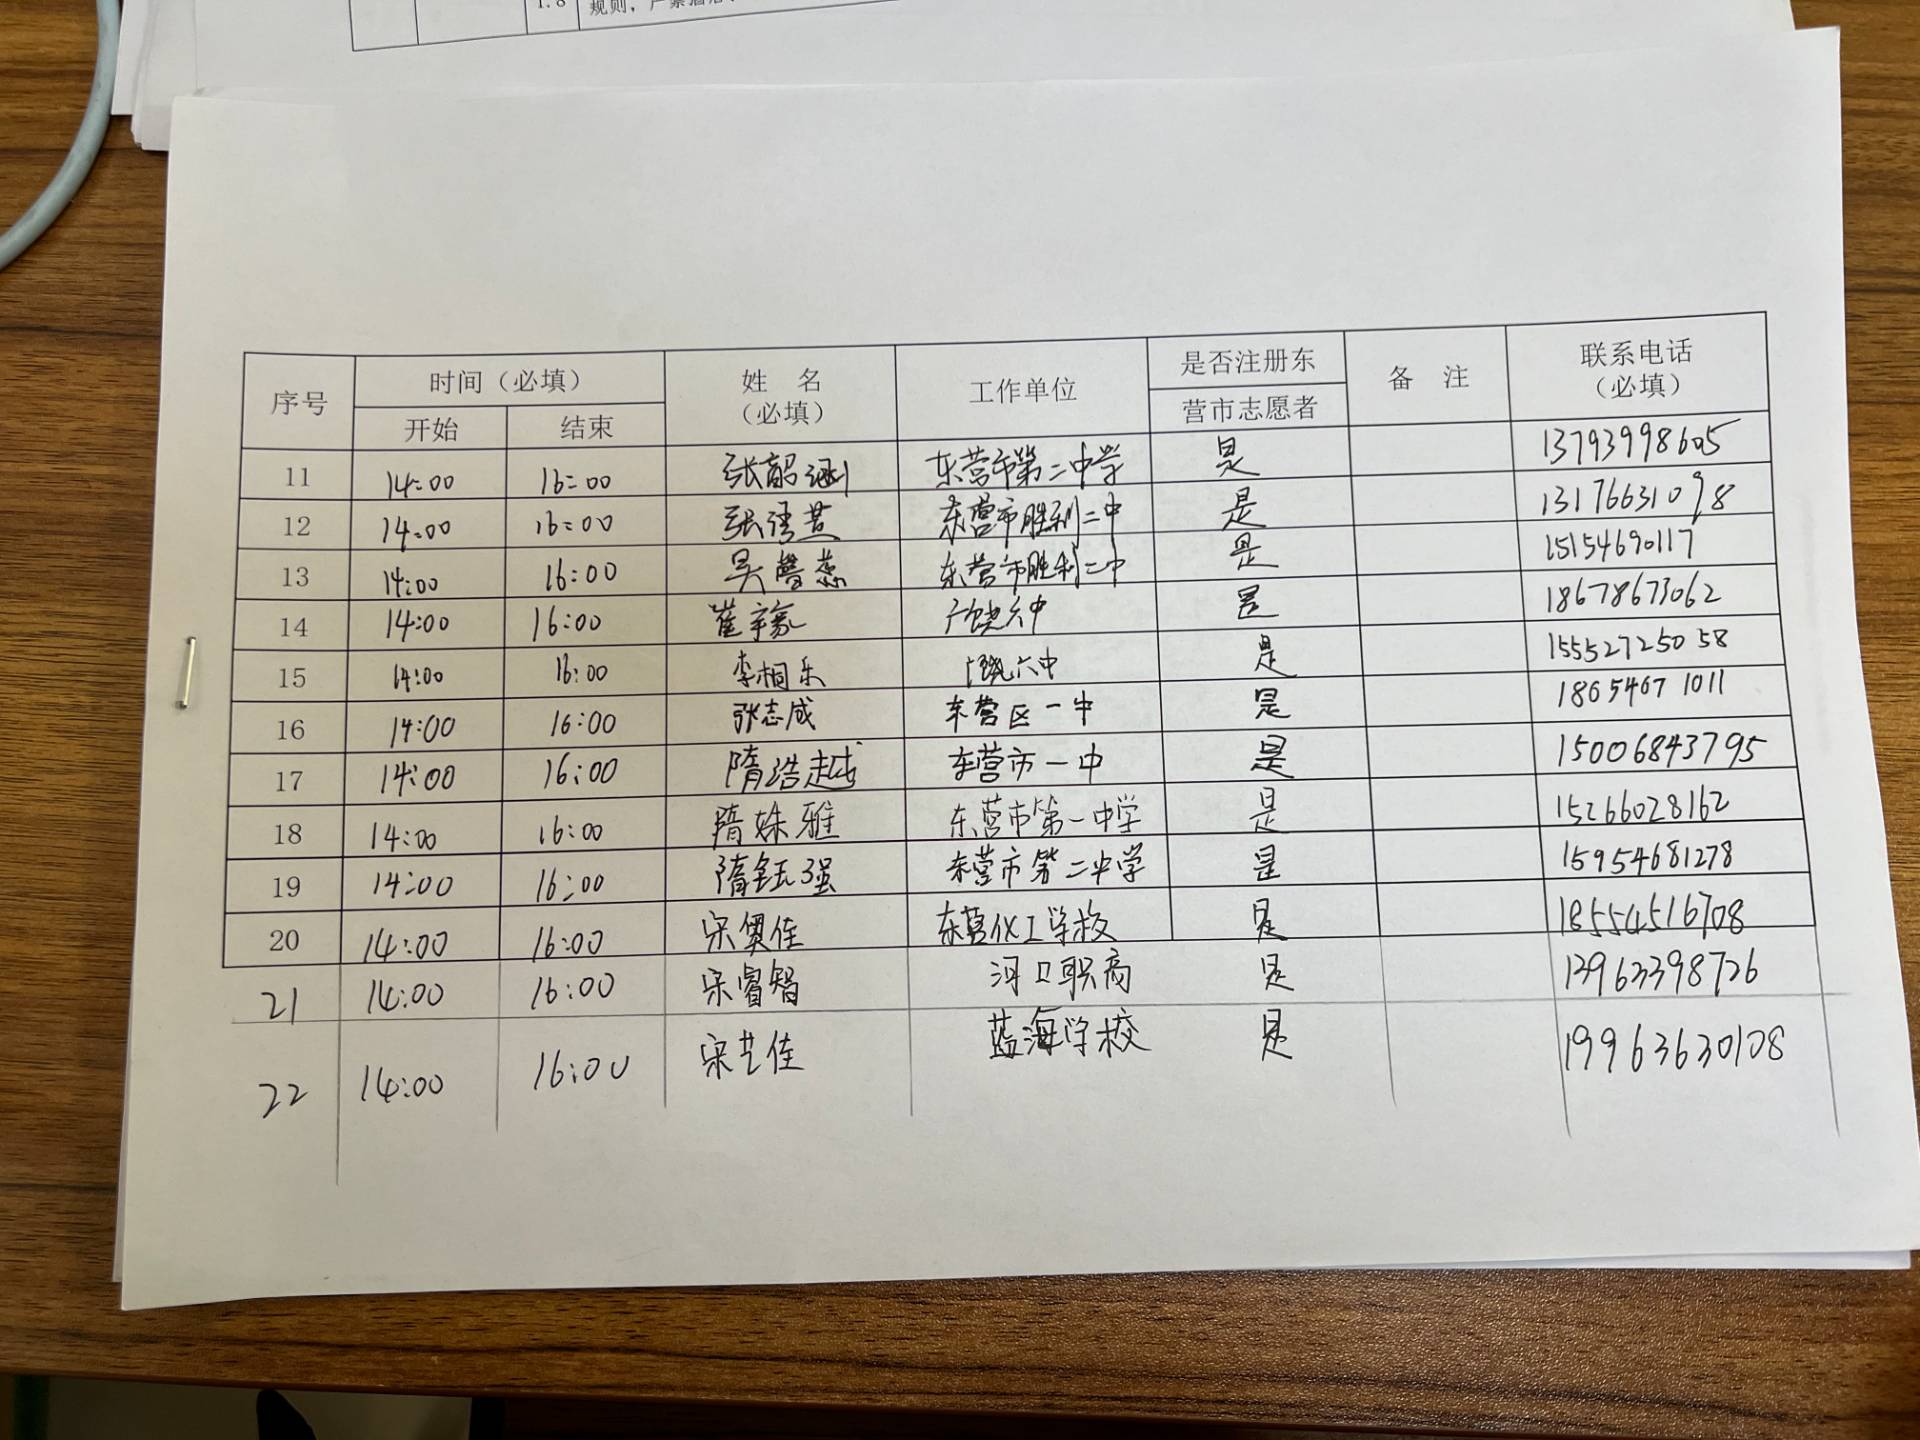 1.8 规则，严禁酒后
序号 时间（必填） 姓 名（必填） 工作单位 是否注册东营市志愿者 备 注 联系电话（必填）
开始 结束
11 14:00 16:00 张韶涵 东营市第二中学 是 13793998605
12 14:00 16:00 东营市胜利二中 是 13176631098
13 14:00 16:00 吴馨蕊 东营市胜利二中 是 15154690117
14 14:00 16:00 崔 广饶六中 是 18678673062
15 14:00 16:00 李桐乐 广饶六中 是 15552725058
16 14:00 16:00 张志成 东营区一中 是 18654671011
17 14:00 16:00 隋浩越 东营市一中 是 15006843795
18 14:00 16:00 隋姝雅 东营市第一中学 是 15266028162
19 14:00 16:00 隋钰强 东营市第二中学 是 15954681278
20 14:00 16:00 宋奠佳 东营化工学校 是 18554516708
21 14:00 16:00 宋睿智 河口职高 是 13963398726
22 14:00 16:00 宋艺佳 蓝海学校 是 19963630108